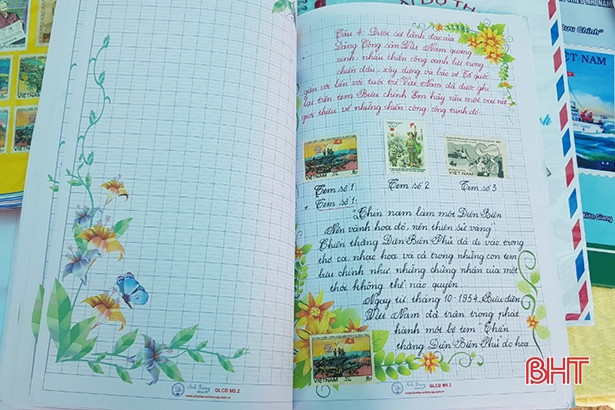 Câu 4. Dưới sự lãnh đạo của
Đảng Cộng sản Việt Nam quang
vinh, nhiều chiến công oanh liệt trong
chiến đấu, xây dựng và bảo vệ Tổ quốc
gắn với tuổi trẻ Việt Nam đã được ghi
lại trên tem Bưu chính. Em hãy nêu một vài nét
giới thiệu về những chiến công, công trình đó.
VIỆT NAM
Tem số 1
Tem số 2
Tem số 3
- Tem số 1:
"Chín năm làm một Điện Biên
Nên vành hoa đỏ, nên thiên sử vàng"
Chiến thắng Điện Biên Phủ đã đi vào trong
thơ ca, nhạc họa và cả trong những con tem
bưu chính như những chứng nhân của một
thời không thể nào quên.
Ngay từ tháng 10-1954, Bưu điện
Việt Nam đã trân trọng phát
hành một bộ tem "Chiến
thắng Điện Biên Phủ" do họa
VIỆT NAM
GLCĐ M5.2
GLCĐ M5.2
Bưu Chính
ỆT NAM
BHT